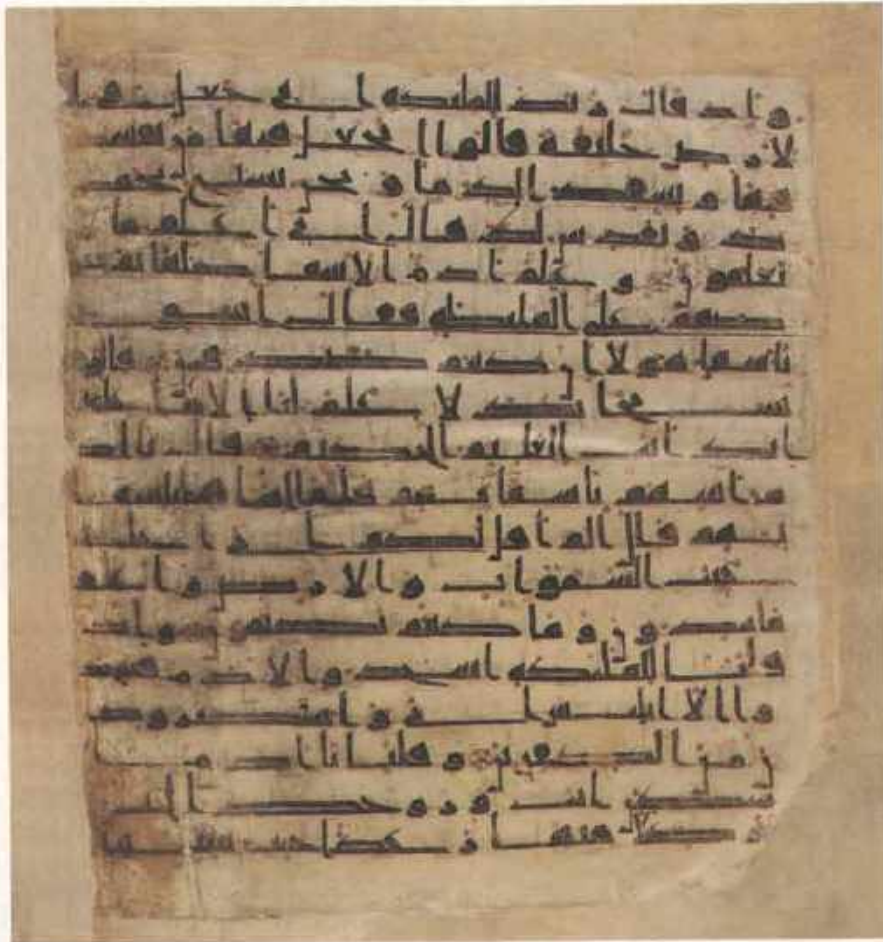 و اذ قال ربك للملئكه انى جعل فى ا
لارض خليفة قالوا اتجعل فيها من يفسد
فيها و يسفك الدما و نحن نسبح بحمد
ك و نقدس لك قال انى اعلم ما لا
تعلمون و علم ادم الاسما كلها ثم عر
ضهم على الملئكه فقال انبونى
باسما هولا ان كنتم صدقين قالوا
سبحنك لا علم لنا الا ما علمتنا
انك انت العليم الحكيم قال يادم
انبهم باسمائهم فلما انباهم باسما
ئهم قال الم اقل لكم انى اعلم
غيب السموات و الارض و اعلم
ما تبدون و ما كنتم تكتمون و اذ
قلنا للملئكه اسجدوا لادم فسجد
وا الا ابليس ابى و استكبر و كا
ن من الكفرين و قلنا يادم ا
سكن انت و زوجك الجن
ة و كلا منها رغدا حيث شئتما